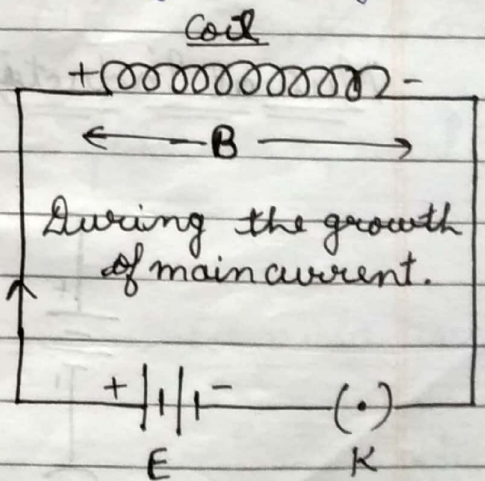 Coil
+ -
B
During the growth
of main current.
+ -
(•)
E K